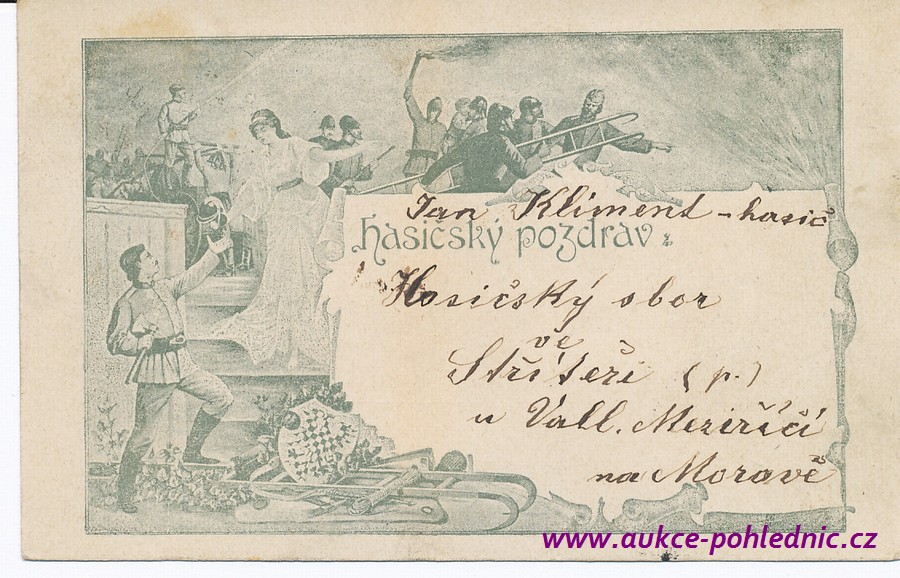 Jan Kliment - hasič
hasičský pozdrav:
Hasičský sbor
ve
Stříteži (p.)
u Vall. Meziříčí
na Moravě
www.aukce-pohlednic.cz